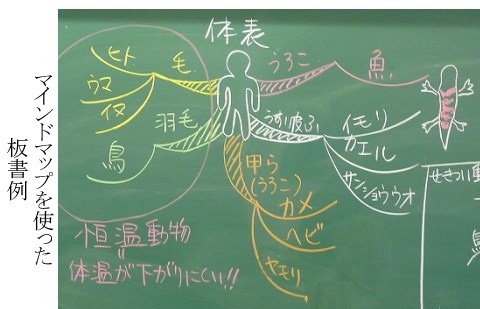 マインドマップを使った
板書例
体表
毛
ヒト
ウマ
イヌ
羽毛
鳥
うろこ
魚
うすい皮ふ
イモリ
カエル
サンショウウオ
甲ら
(うろこ)
カメ
ヘビ
ヤモリ
恒温動物
体温が下がりにくい!!
せきつい動
鳥